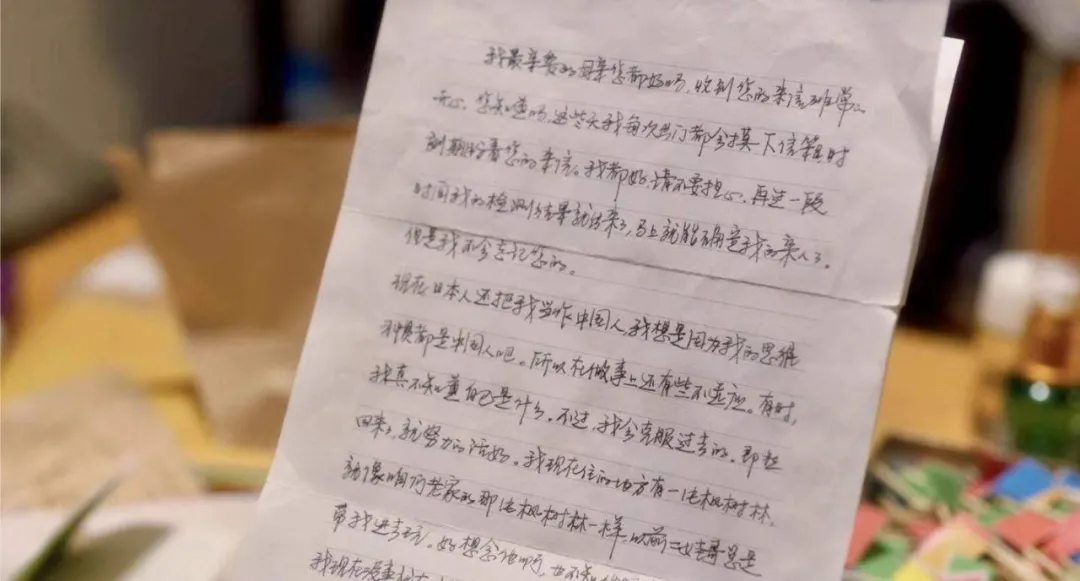 我最亲爱的母亲您都好吗,收到您的来信非常
开心。您知道吗,这些天我每次出门都会摸下信箱时
刻期盼着您的来信。我都好,请不要担心,再过一段
时间我的检测结果就出来了,马上就能确定我的亲人了。
但是我不会忘记您的。
现在日本人还把我当作中国人,我想是因为我的思维
和习惯都是中国人吧。所以在做事上还有些不适应。有时,
我真不知道自己是什么。不过,我会克服过去的。即然
回来了就努力的活好。我现在住的地方有一片枫树林,
就像咱们老家的那片枫树林一样,以前二哥总是
带我进去玩。好想念他啊,也不知
我现在没事